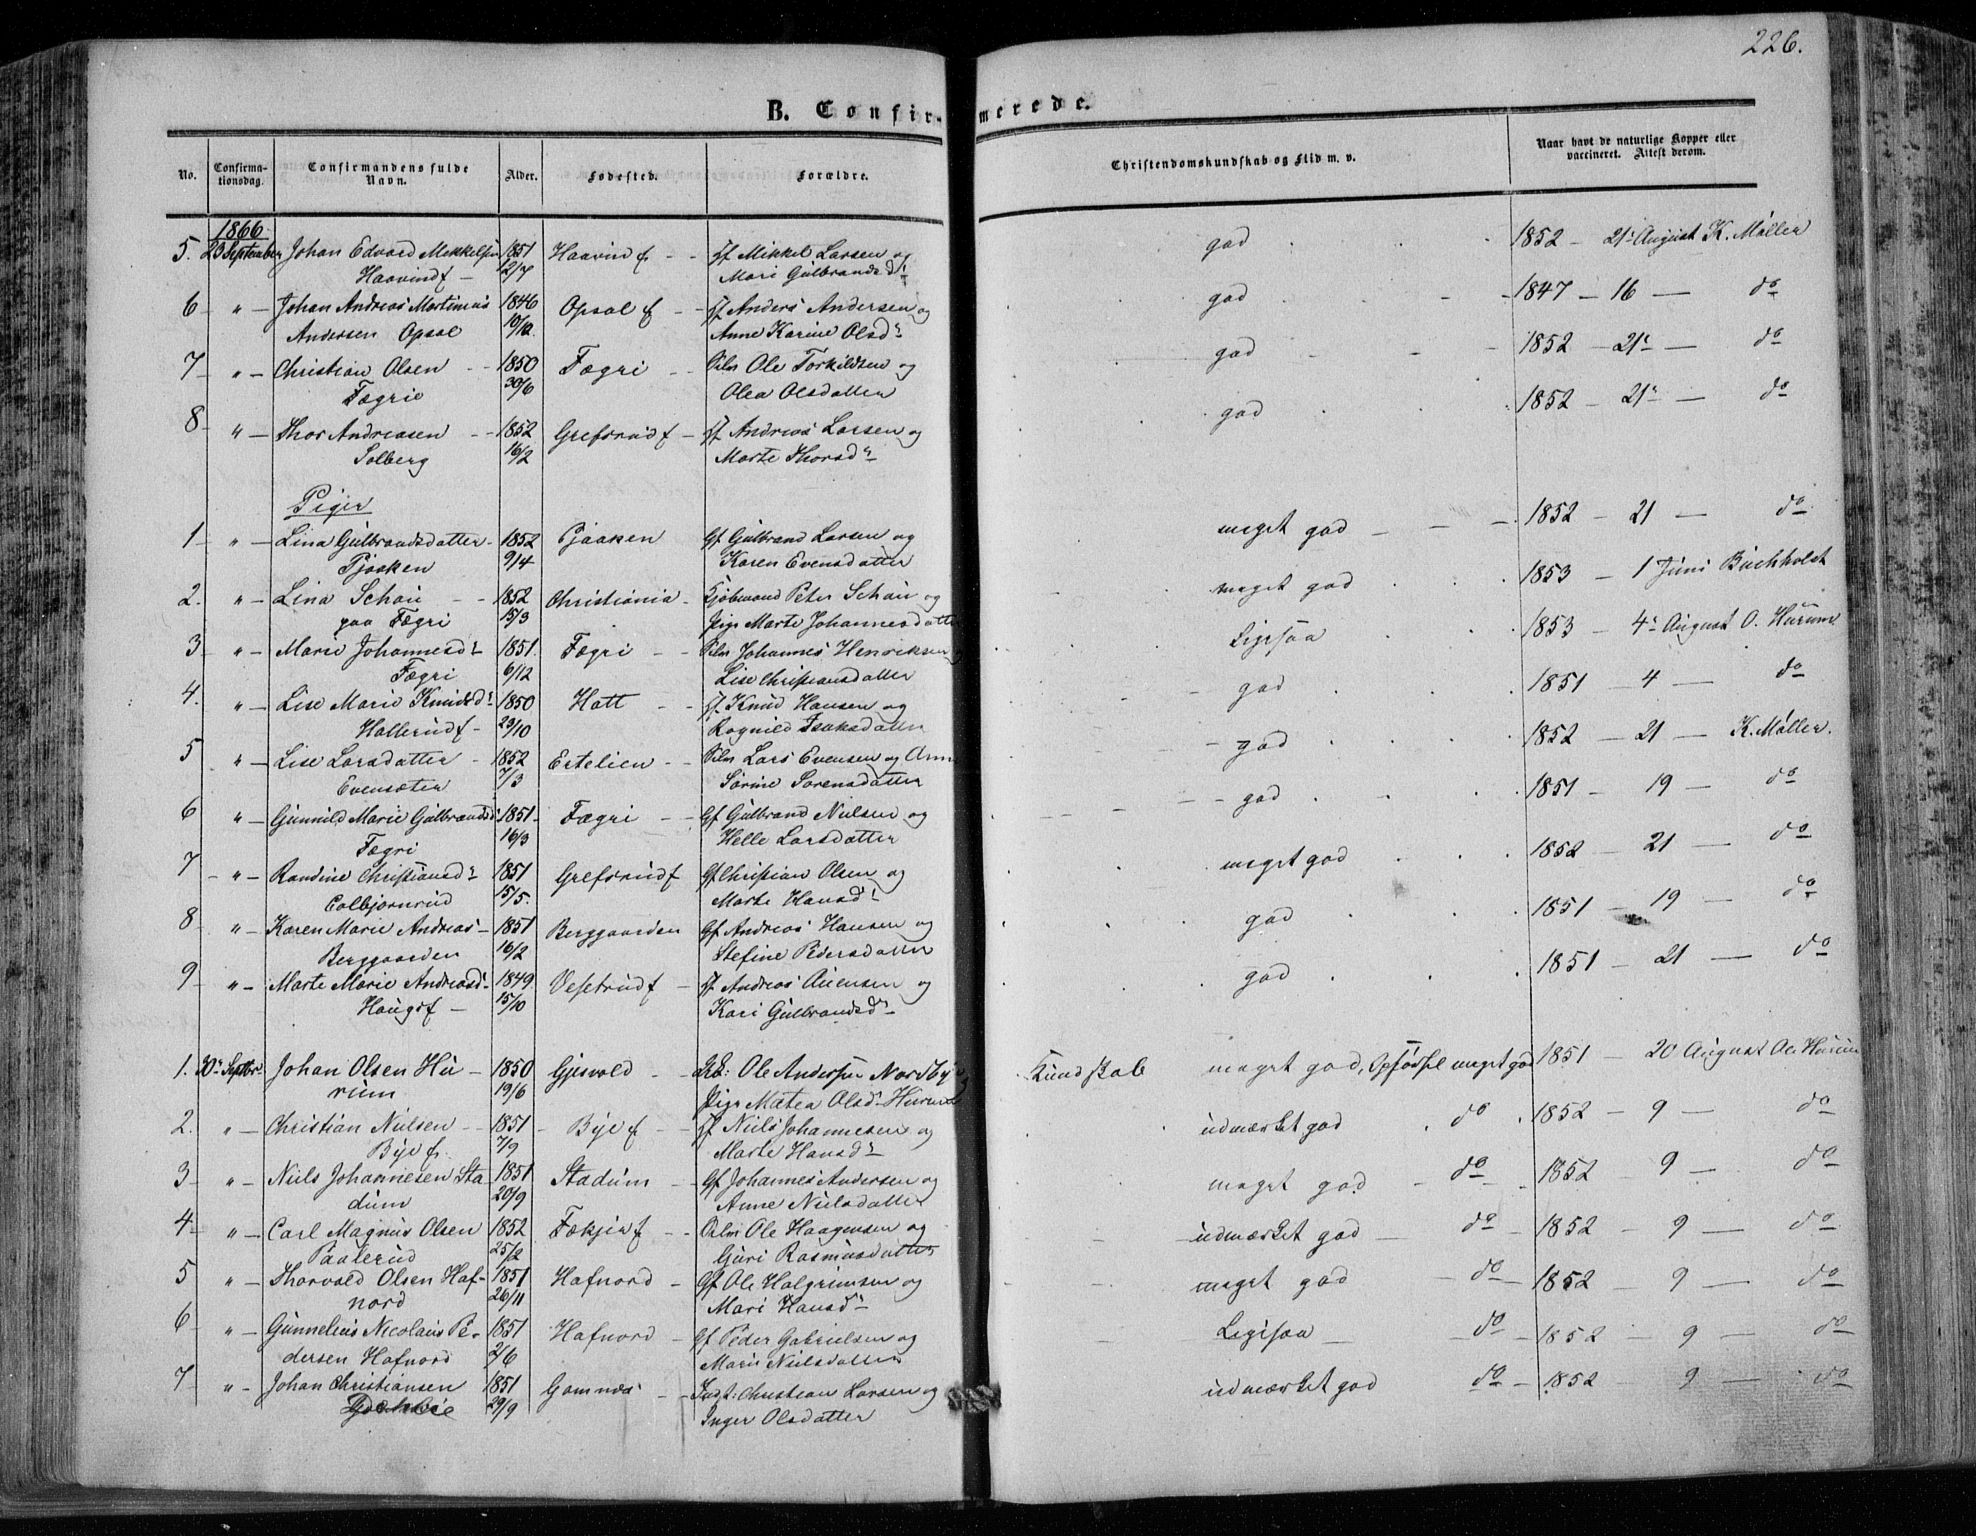 226.
B. Confirmerede.
No.
Confirmationsdag.
Confirmandens fulde Navn.
Alder.
Fødested.
Forældre.
Christendomskundskab og Flid m. v.
Naar havt de naturlige Kopper eller vaccineret. Attest derom.
1866
5. 23 September Johan Edvard Mikkelsen 1851 Haavind f. Mikkel Larsen og god 1852 - 21 August K. Møller
Haavind f 12/7 Mari Gulbrandsd
6 " Johan Andreas Martinius 1846 Opsal f Anders Andersen og god 1847 - 16 - do
Andersen Opsal 19/12 Anne Karine Olsdr
7 " Christian Olsen 1850 Fægri Ole Torkildsen og god 1852 - 21 - do
Fægrie 30/6 Olea Olsdatter
8 " Thor Andreasen 1852 Grefsrud f Andreas Larsen og god 1852 - 21 - do
Solberg 16/2 Marte Thorsdr
Piger
1 " Lina Gulbrandsdatter 1852 Pjaaken Gf Gulbrand Larsen og meget god 1852 - 21 - do
Pjaaken 9/4 Karen Evensdatter
2. " Lina Schou 1852 Christiania Kjøbmand Peter Schou og meget god 1853 - 1 Juni Buchholst
paa Fægri 15/3 Pige Marte Johannesdatter
3 " Marie Johannesdr 1851 Fægri Johannes Henriksen og Ligesaa 1853 - 4 August O. Hurum
Fægri 6/12 Lise Christiansdatter
4. " Lise Marie Knudsdr 1850 Hatt Knud Hansen og god 1851 - 4 - do
Hallerud f 29/10 Ragnild Isaksdatter
5 " Lise Larsdatter 1852 Ertelien Lars Evensen og Anne god 1852 - 21 - K. Møller.
Evensæter 7/3 Sørine Sørensdatter
6 " Gunnild Marie Gulbrandsd 1851 Fægri Gf Gulbrand Nielsen og god 1851 - 19 - do
Fægri 16/3 Helle Larsdatter
7 " Randine Christiansdr 1851 Grefsrud f Gf Christian Olsen og meget god 1852 - 21 - do
Colbjørnrud 15/5. Marte Hansdr
8 " Karen Marie Andreas 1851 Berggaarden Gf Andreas Hansen og god 1851 - 19 - do
Berggaarden 16/2 Stefine Pedersdatter
9 " Marte Marie Andreasd 1849 Vesetrud f Andreas Auensen og god 1851 - 21 - do
Haugsf 15/10 Kari Gulbrandsdr
1. 30 Septbr. Johan Olsen Hu- 1850 Gjesvold Ole Andersen Nordby Kundskab meget god, Opførsel meget god 1851 - 20 August Ole Hurum
rum 19/6 Pige Matea Olsdr Hurum
2. " Christian Nielsen 1851 Bye f Niels Johannesen og udmærket god do 1852 - 9 - do
Bye f. 7/9 Marte Hansdr
3 " Niels Johannesen Sta- 1851 Stadum Gf Johannes Andersen og meget god do 1852 - 9 - do
dum 20/9 Anne Nielsdatter
4 " Carl Magnus Olsen 1852 Fækjie f Ole Haagensen og udmærket god do 1852 - 9 - do
Paalerud 25/2 Guri Rasmusdatter
5 " Thorvald Olsen Haf- 1851 Hafnord Gf Ole Halgrimsen og meget god do 1852 - 9 - do
nord 26/11 Mari Hansdr
6 " Gunnelius Nicolaus Pe- 1851 Hafnord Gf Peder Gabrielsen og Ligesaa do 1852 - 9 - do
dersen Hafnord 2/6 Marie Nielsdatter
7 " Johan Christiansen 1851 Gomnæs Indst: Christian Larsen og udmærket god do 1852 - 9 - do
29/9 Inger Olsdatter